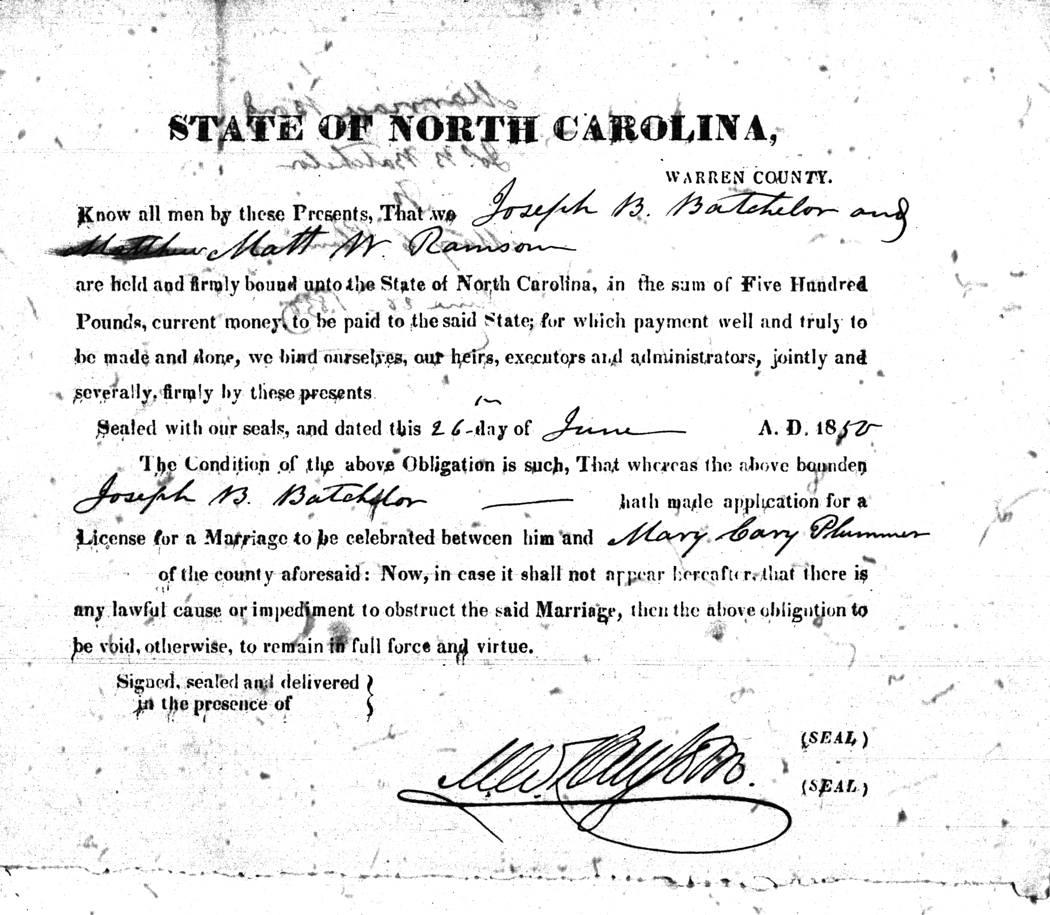 STATE OF NORTH CAROLINA,
WARREN COUNTY.
Know all men by these Presents, That we Joseph B. Batchelor and
Matthew Matt W. Ransom
are held and firmly bound unto the State of North Carolina, in the sum of Five Hundred
Pounds, current money, to be paid to the said State; for which payment well and truly to
be made and done, we bind ourselves, our heirs, executors and administrators, jointly and
severally, firmly by these presents
Sealed with our seals, and dated this 26 day of June A. D. 1850
The Condition of the above Obligation is such, That whereas the above bounden
Joseph B. Batchelor hath made application for a
License for a Marriage to be celebrated between him and Mary Cary Plummer
of the county aforesaid: Now, in case it shall not appear hereafter, that there is
any lawful cause or impediment to obstruct the said Marriage, then the above obligation to
be void, otherwise, to remain in full force and virtue.
Signed, sealed and delivered
in the presence of
(SEAL)
M. W. Ransom.
(SEAL)